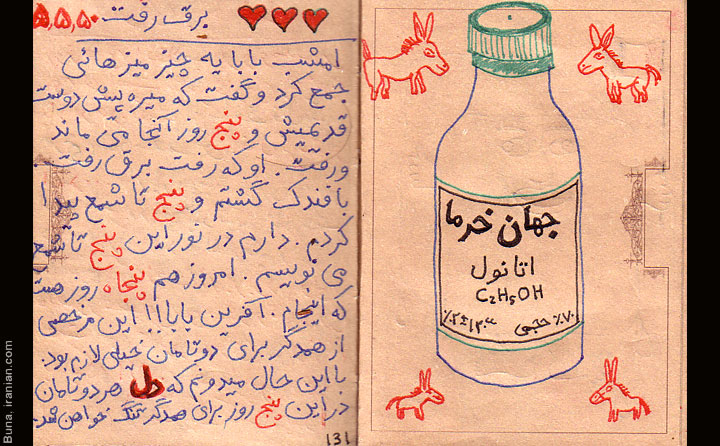 برق رفت ۵،۵،۵۰
امشب بابا یه چیز میز هائی
جمع کرد و گفت که میره پیش دوست
قدیمیش و پنج روز آنجا می ماند
و رفت. او که رفت برق رفت.
با فندک گشتم و پنج تا شمع پیدا
کردم. دارم در نور این پنج تا شمع
می نویسم. امروز هم پنجاه روز هست
که اینجام. آفرین بابا!!! این مرخصی
از همدیگر برای دوتامان خیلی لازم بود.
با این حال میدونم که دل هر دوتامان
در این پنج روز برای همدیگر تنگ خواهد شد.
131
جهان خرما
اتانول
C₂H₅OH
۷۰٪ حجمی
Buna, iranian.com